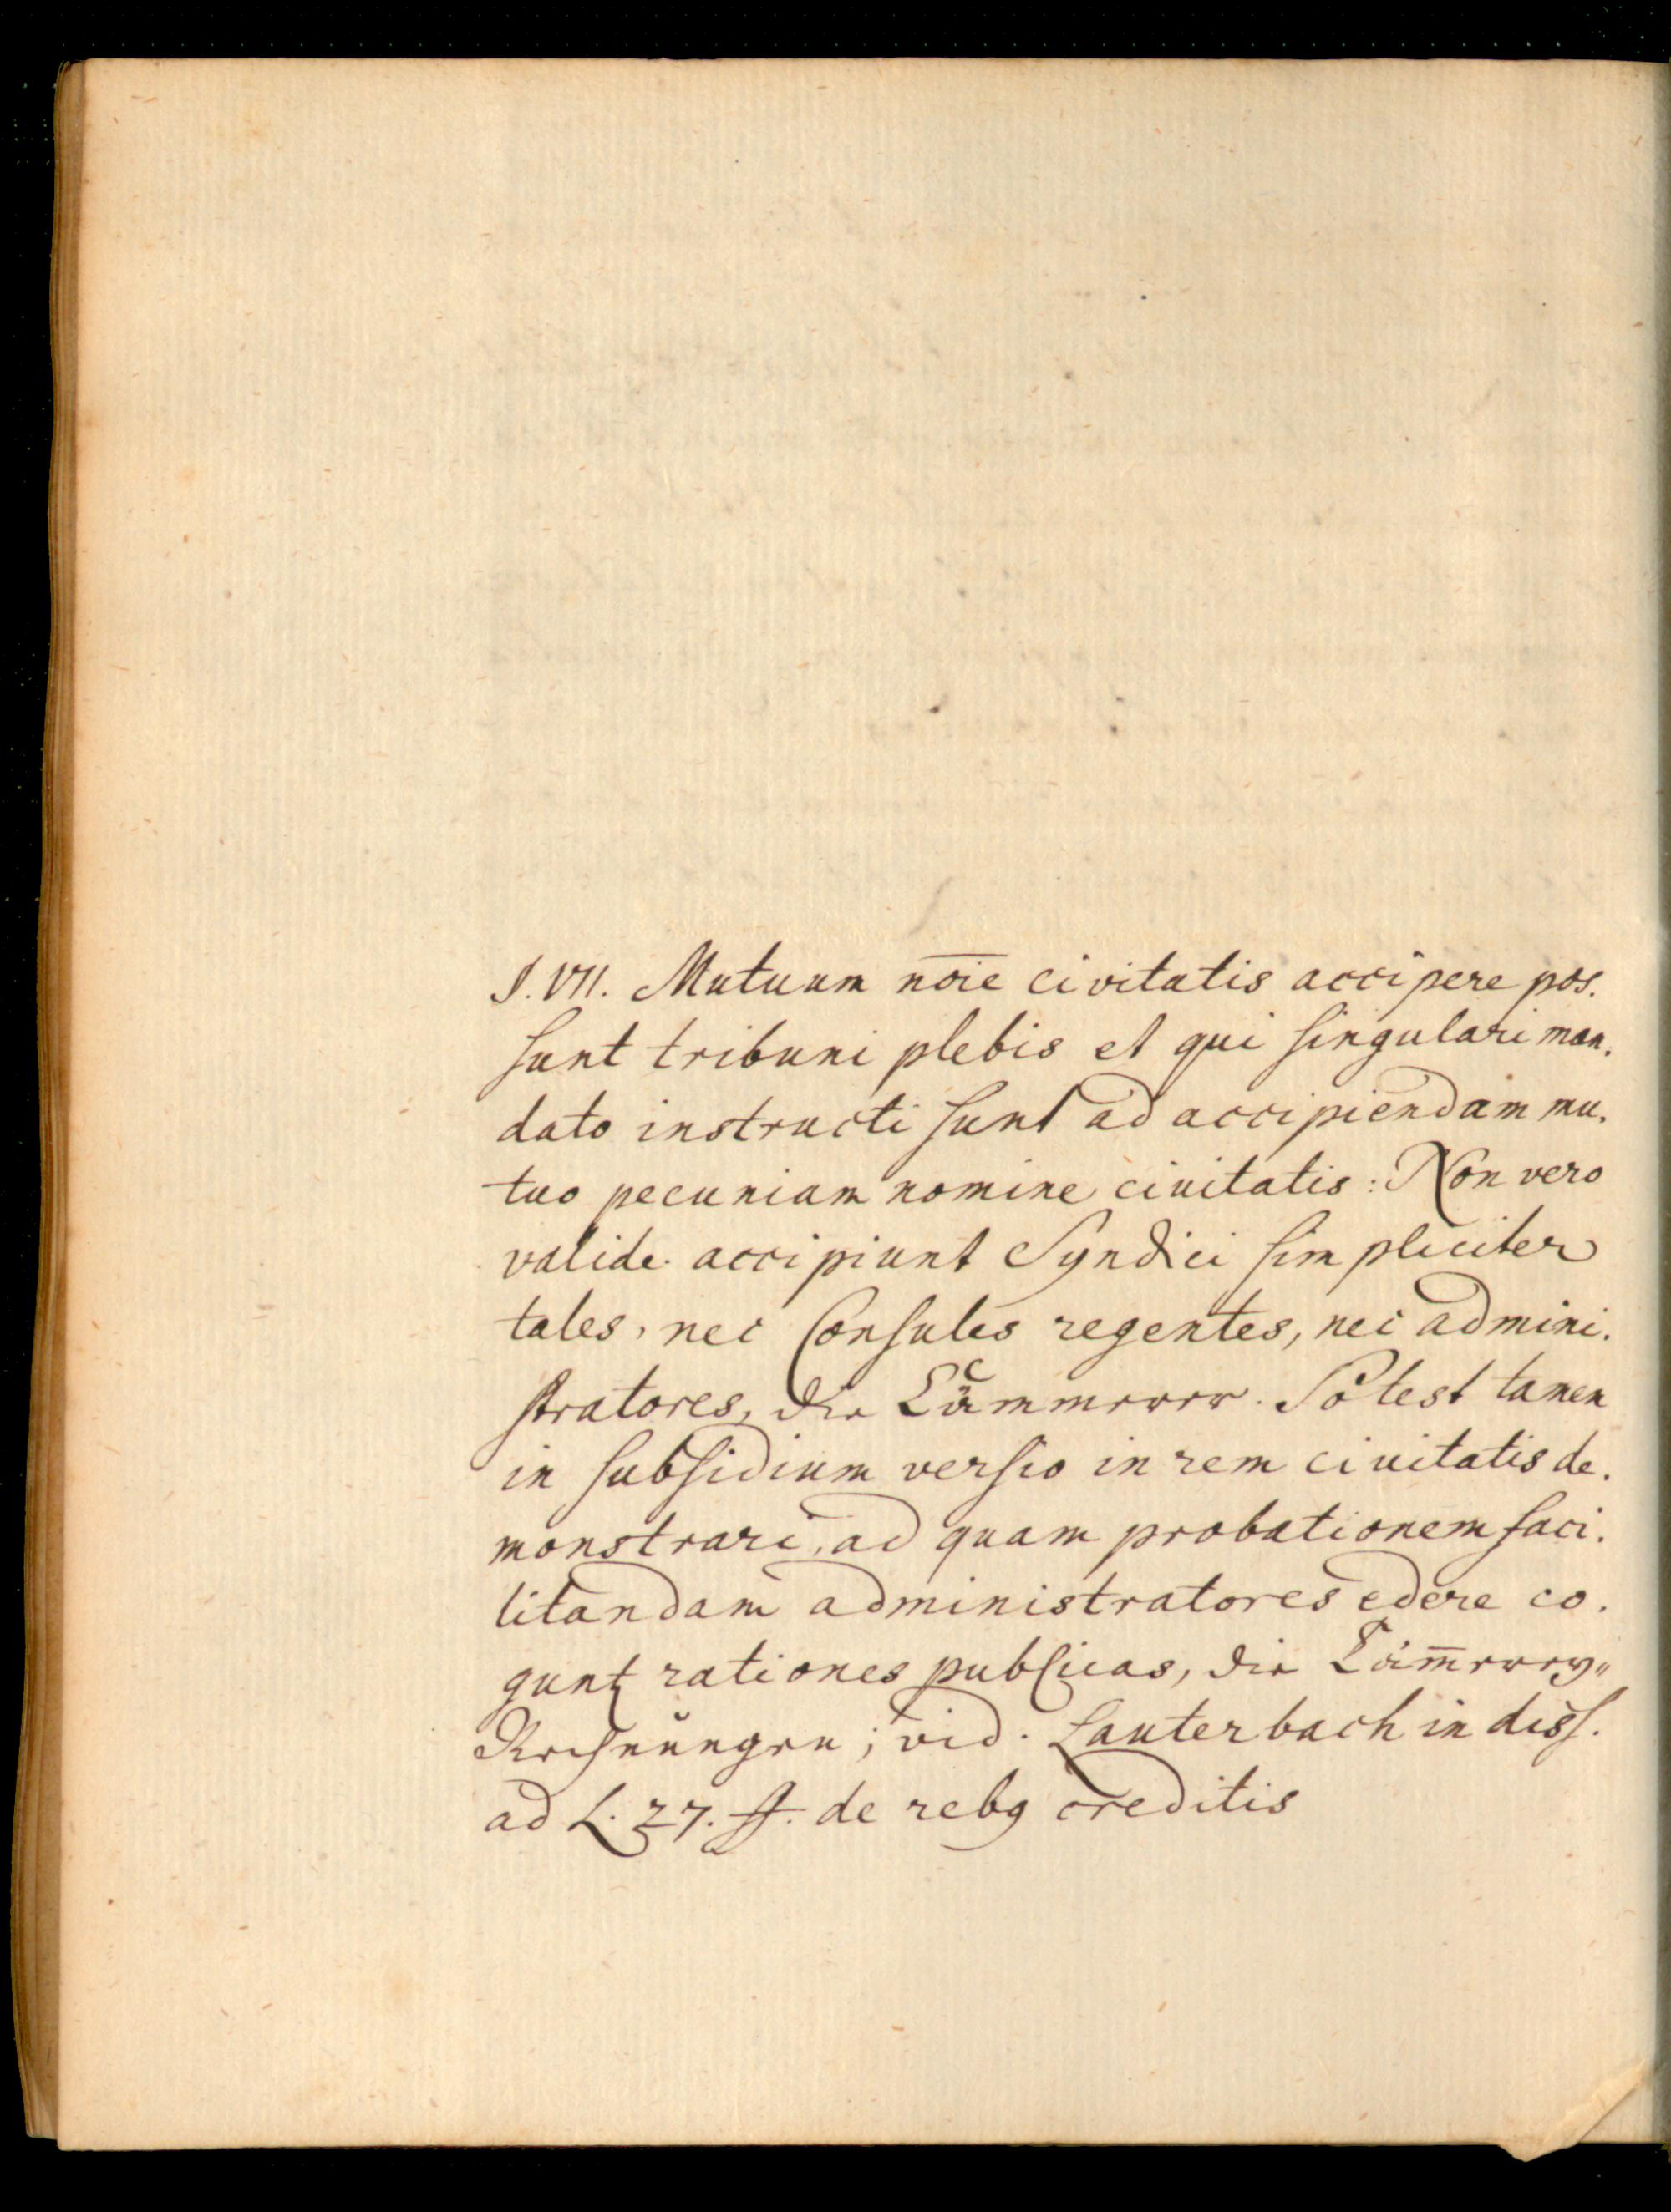 §. VII. Mutuum no̅i̅e civitatis accipere pos.
sunt tribuni plebis et qui singulari man.
dato instructi sunt ad accipiendam mu.
tuo pecuniam nomine ciuitatis: Non vero
valide accipiunt Syndici simpliciter
tales, nec Consules regentes, nec admini.
stratores, die Cämmerer. Potest tamen
in subsidium versio in rem ciuitatis de.
monstrari, ad quam probationem faci.
litandam administratores edere co.
gunt rationes publicas, die Cäm̅erey„
Rechnungen; vid. Lauterbach in diss.
ad L. 27. ff. de rebꝰ creditis